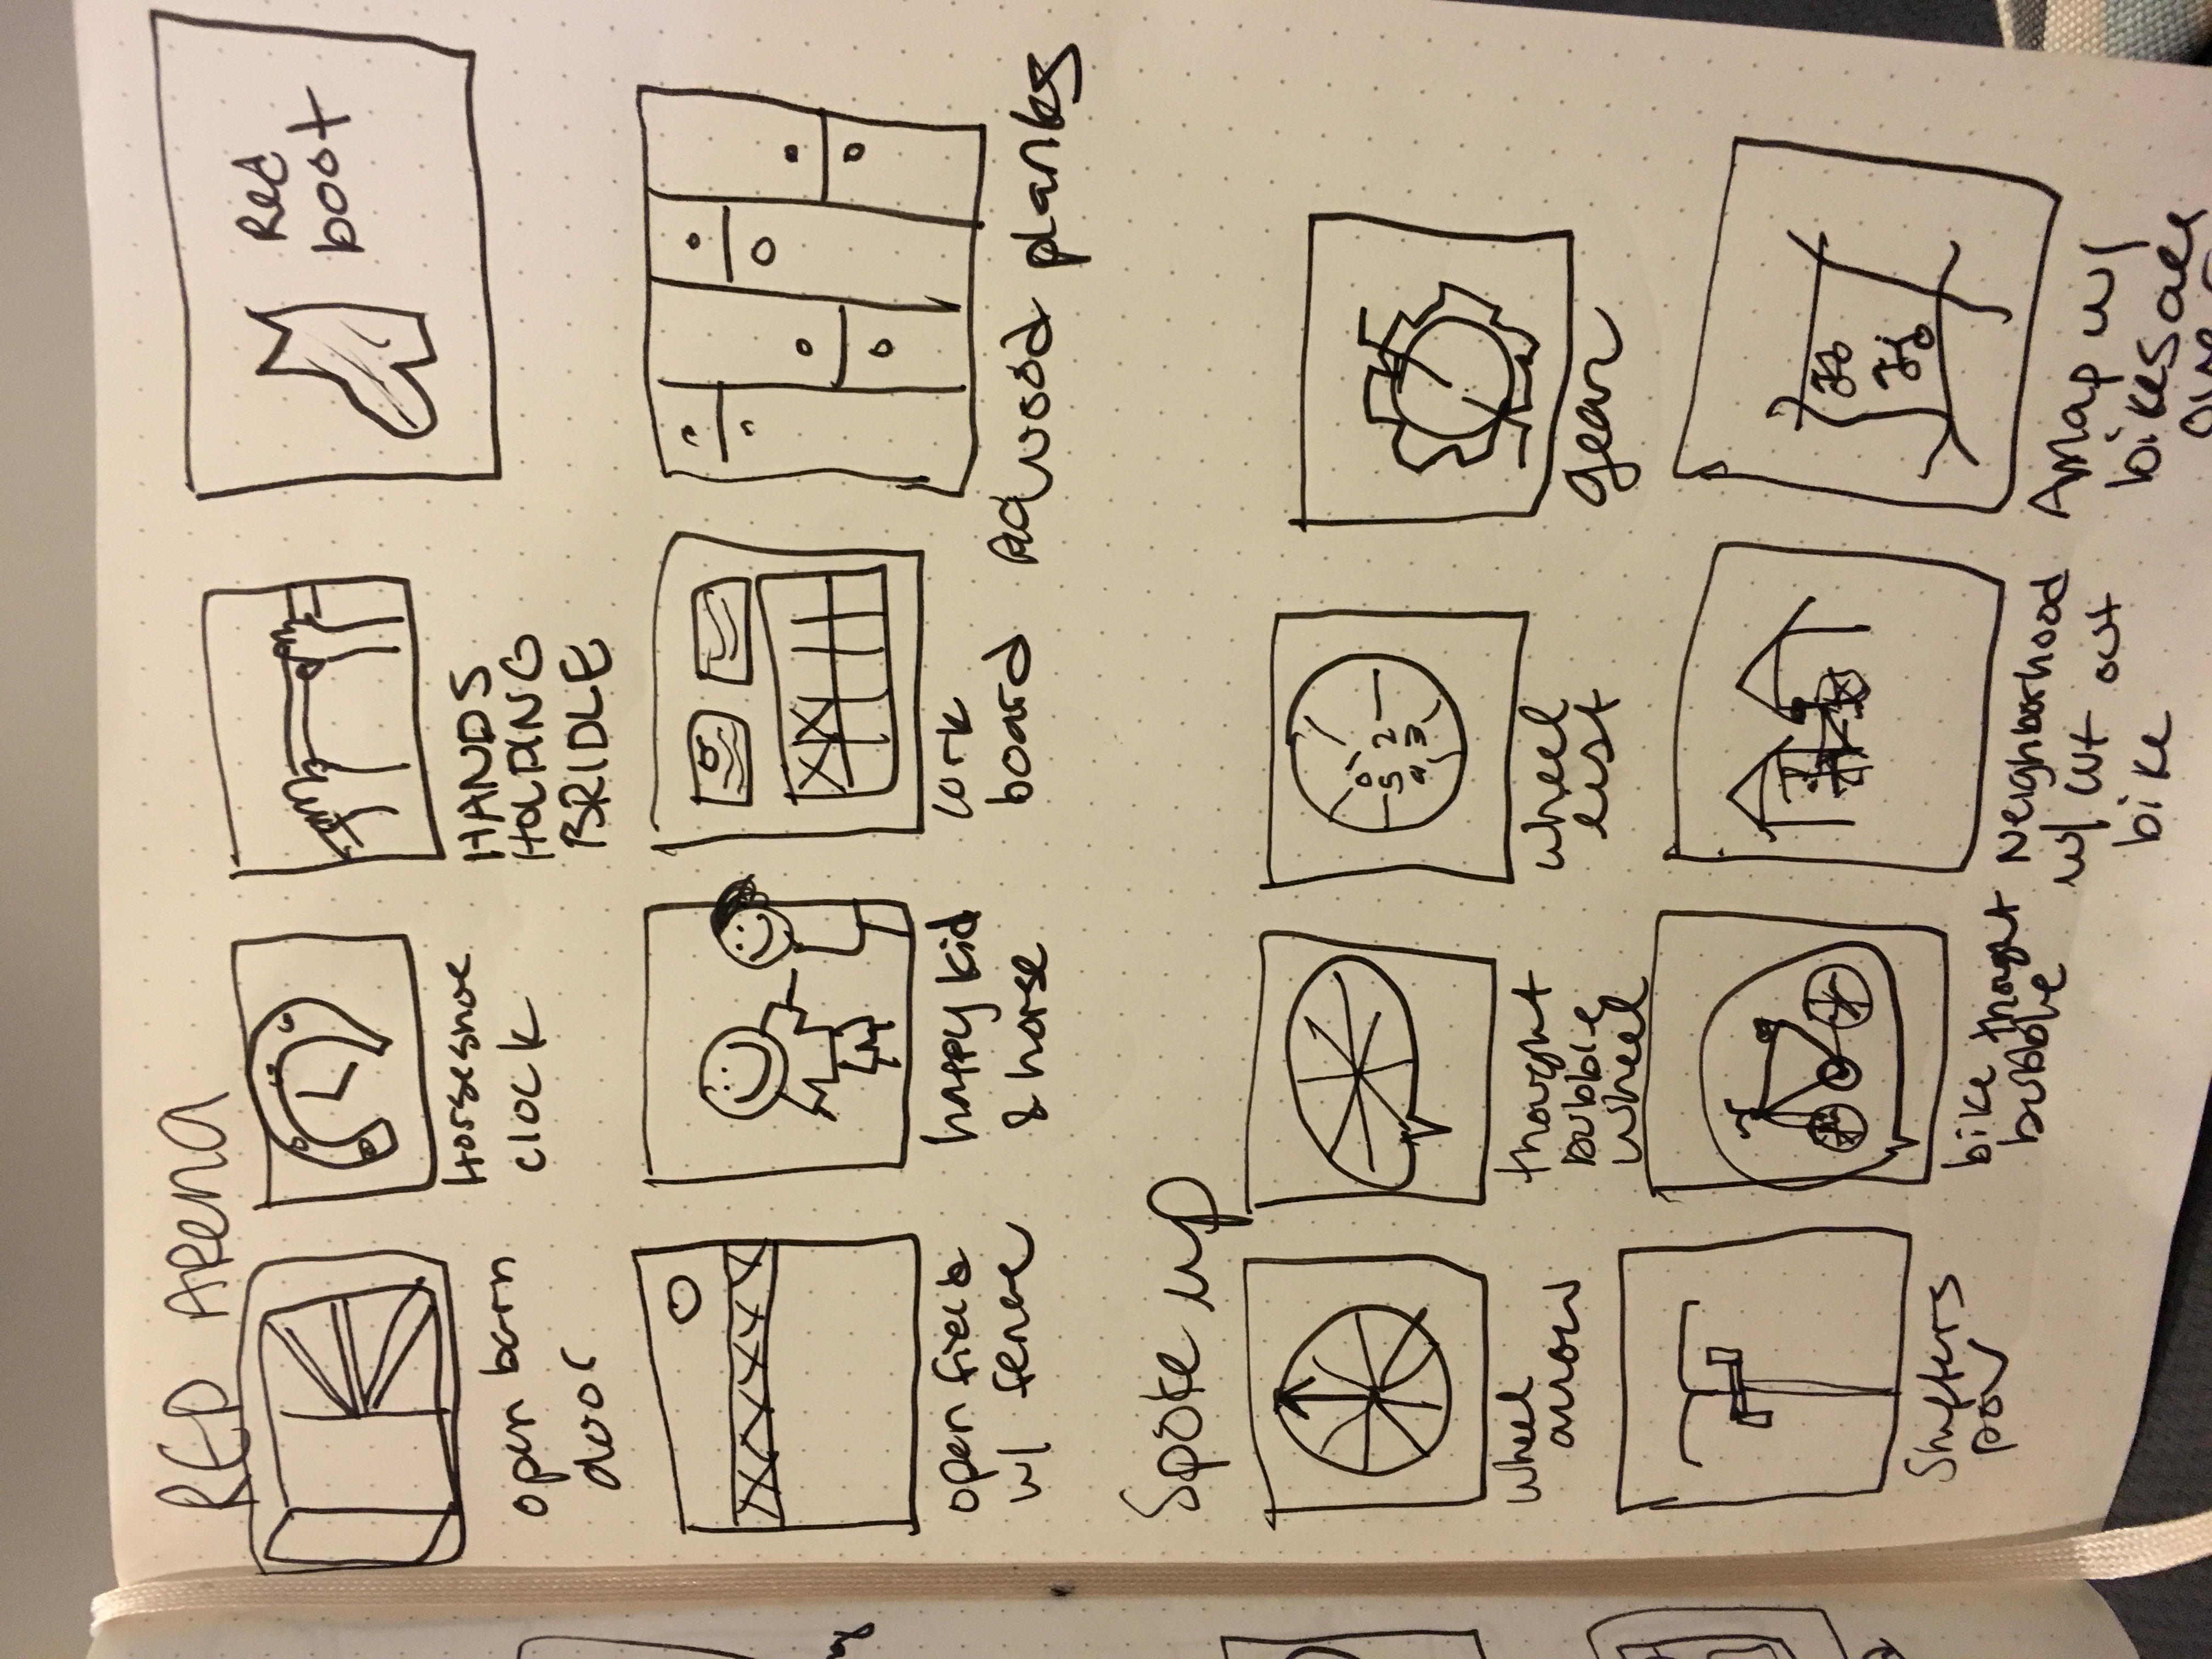 RED Arena
Red
boot
open barn
door
Horseshoe
clock
HANDS
HOLDING
BRIDLE
open field
w/ fence
happy kid
& horse
cork
board
wood planks
Spoke up
0 1
5 2
4 3
wheel
arrow
thought
bubble
wheel
wheel
list
gear
Shifters
pov
bike thought
bubble
Neighborhood
w/ cut out
bike
A map w/
bikes all
over